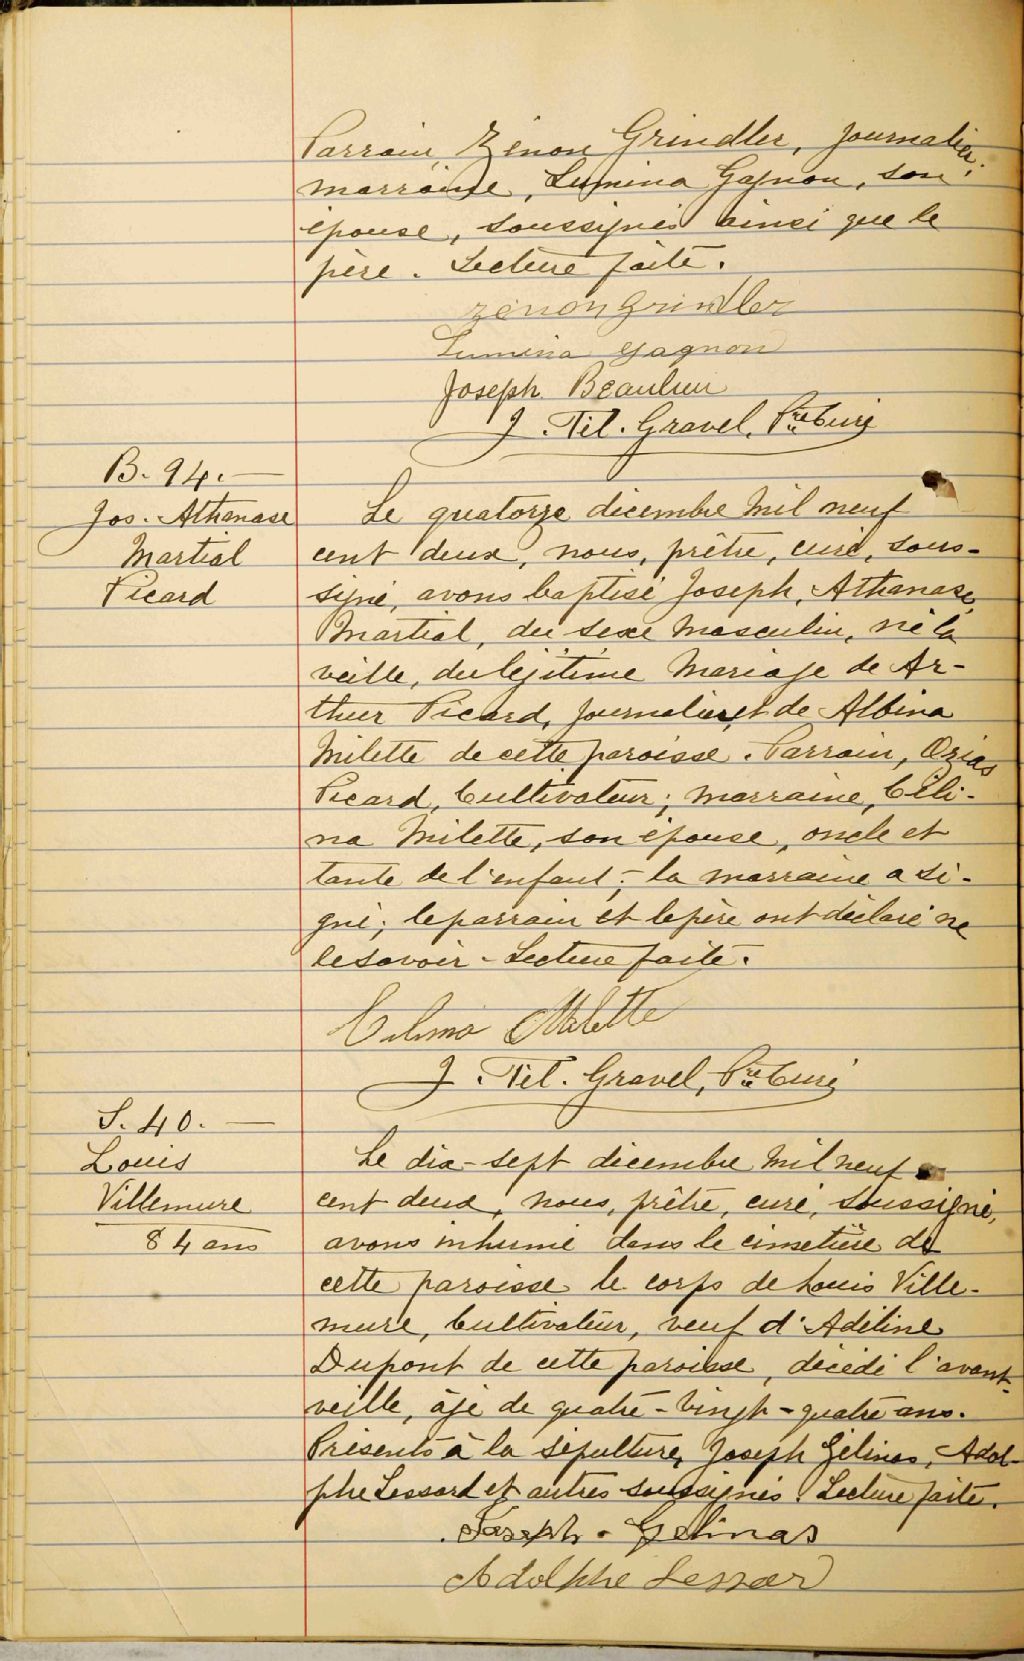 Parrain, Zénon Grindler, journalier;
marraine, Lumina Gagnon, son
épouse, soussignés ainsi que le
père. Lecture faite.
Zénon Grindler
Lumina Gagnon
Joseph Beaulieu
J. Tél. Gravel, Ptre Curé
B. 94. —
Jos. Athanase
Martial
Picard
Le quatorze décembre mil neuf
cent deux, nous, prêtre, curé, sous-
signé, avons baptisé Joseph, Athanase,
Martial, du sexe masculin, né la
veille, du légitime mariage de Ar-
thur Picard, journalier, et de Albina
Milette de cette paroisse. Parrain, Ozias
Picard, Cultivateur; marraine, Céli-
na Milette, son épouse, oncle et
tante de l'enfant; - la marraine a si-
gné; le parrain et le père ont déclaré ne
le savoir - Lecture faite.
Celina Milette
J. Tél. Gravel, Ptre Curé
S. 40. —
Louis
Villemure
84 ans
Le dix-sept décembre mil neuf
cent deux, nous, prêtre, curé, soussigné,
avons inhumé dans le cimetière de
cette paroisse le corps de Louis Ville-
mure, Cultivateur, veuf d'Adéline
Dupont de cette paroisse, décédé l'avant-
veille, âgé de quatre-vingt-quatre ans.
Présents à la sépulture, Joseph Gélinas, Adol-
phe Lessard et autres soussignés. Lecture faite.
Joseph Gelinas
Adolphe Lessar